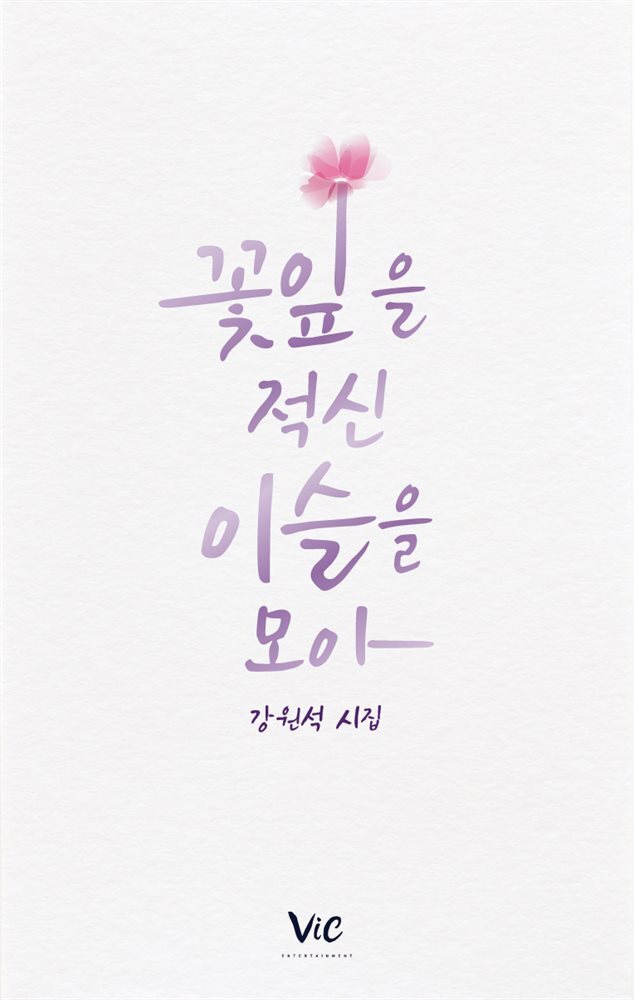 꽃잎을
적신
이슬을
모아
강원석 시집
ViC
ENTERTAINMENT